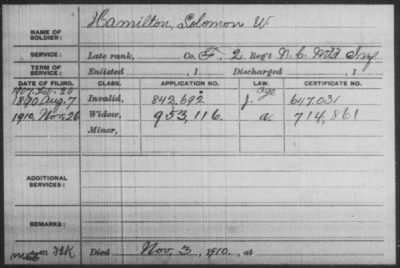 Hamilton, Solomon W
NAME OF SOLDIER:
SERVICE: Late rank, Co. F. 2 Reg't N.C. Mtd Inf
TERM OF SERVICE: Enlisted , 1 Discharged , 1
DATE OF FILING. CLASS. APPLICATION NO. LAW. CERTIFICATE NO.
1907 Feb. 20 age
1890 Aug. 7 Invalid, 842,692 J. 647.031
1910 Nov. 26 Widow, 953,116. a. 714,861
Minor,
ADDITIONAL SERVICES:
REMARKS:
Died Nov. 3, 1910, at